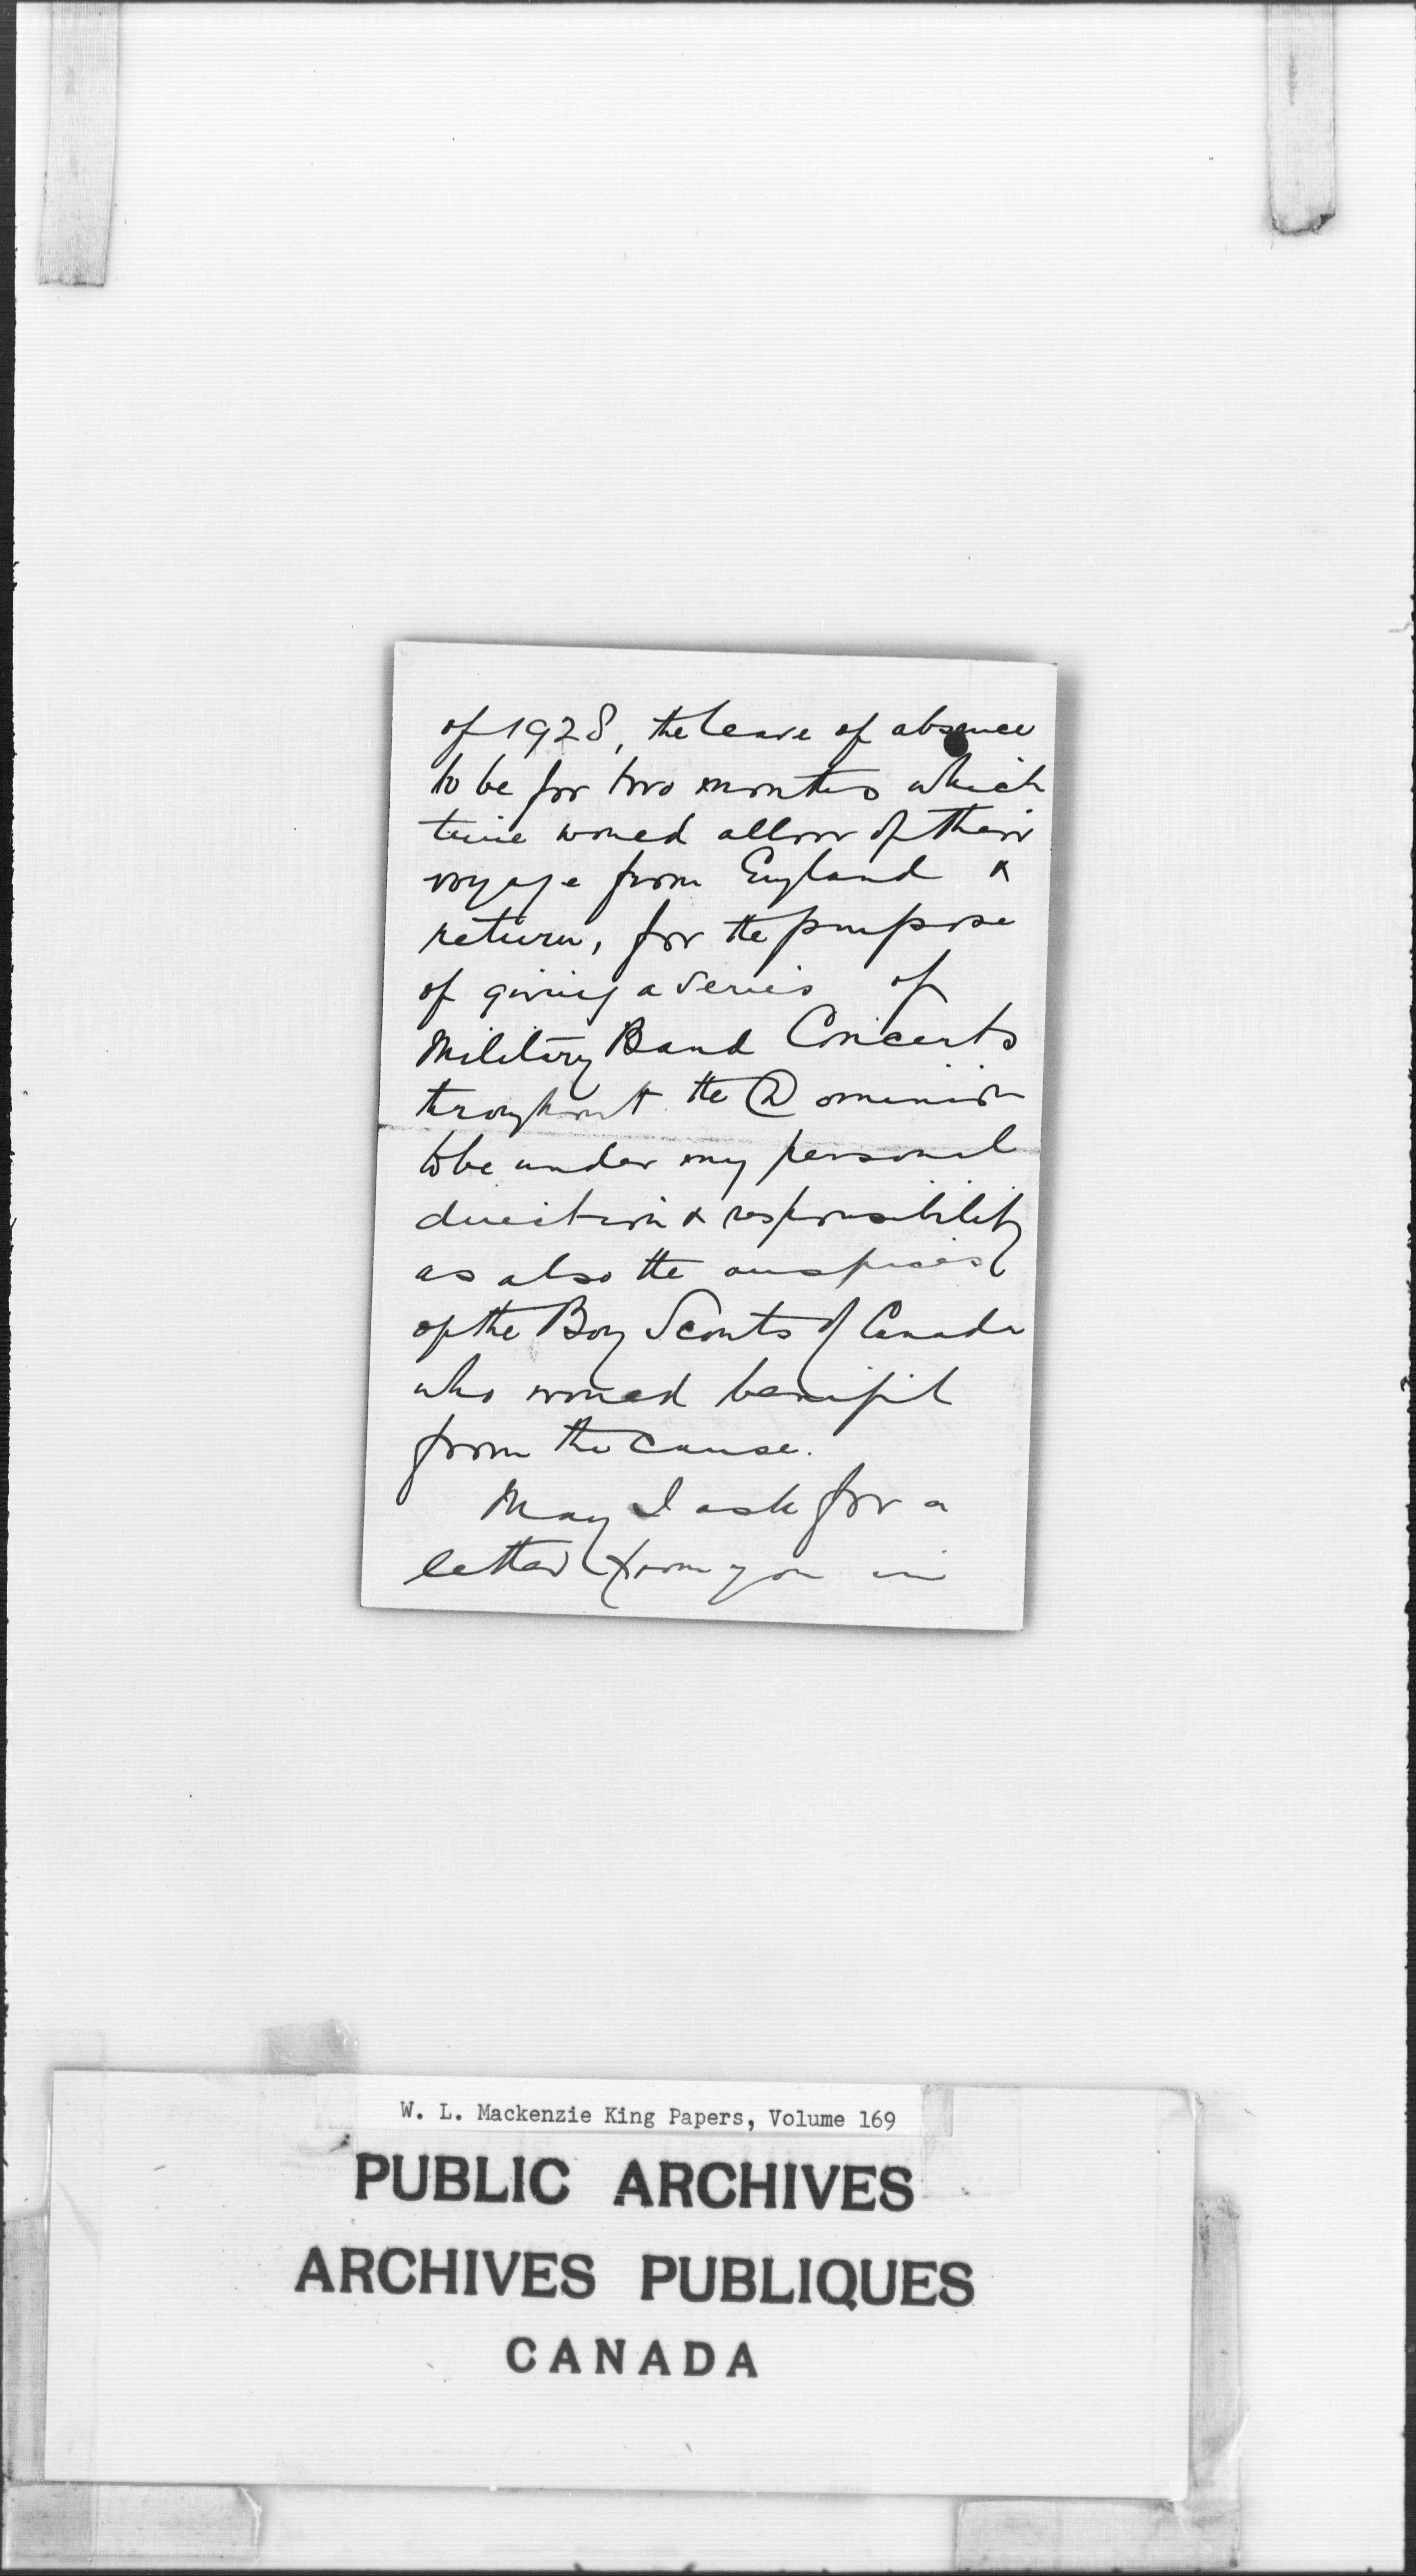 of 1928, the leave of absence
to be for two months which
time would allow of their
voyage from England &
return, for the purpose
of giving a series of
Military Band Concerts
throughout the Dominion
to be under my personal
direction & responsibility
as also the auspices
of the Boy Scouts of Canada
who would benifit
from the cause.
May I ask for a
letter from you in
W. L. Mackenzie King Papers, Volume 169
PUBLIC ARCHIVES
ARCHIVES PUBLIQUES
CANADA